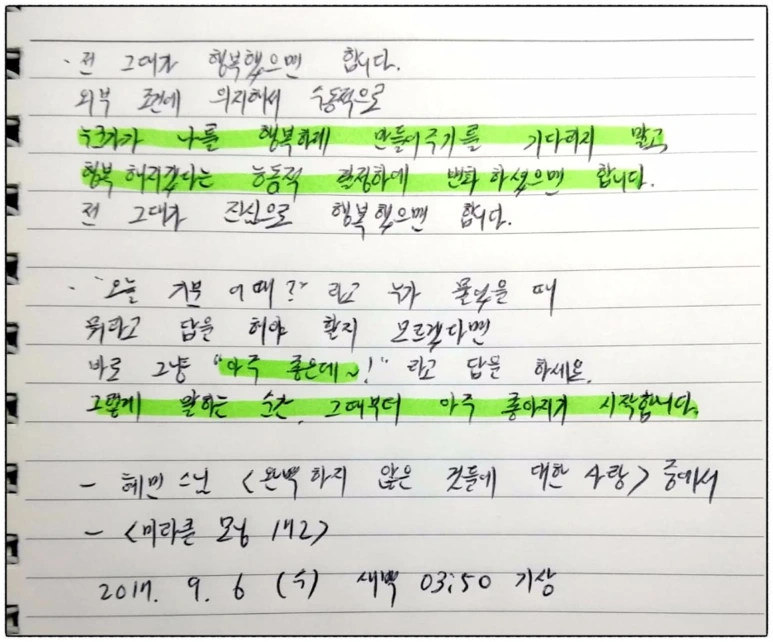 · 전 그대가 행복했으면 합니다.
외부 조건에 의지해서 수동적으로
누군가가 나를 행복하게 만들어주기를 기다리지 말고,
행복 해지겠다는 능동적 결정하에 변화 하셨으면 합니다.
전 그대가 진심으로 행복했으면 합니다.
· "오늘 기분 어때?" 라고 누가 물었을 때
뭐라고 답을 해야 할지 모르겠다면
바로 그냥 "아주 좋은데~!" 라고 답을 하세요.
그렇게 말하는 순간, 그때부터 아주 좋아지기 시작합니다.
- 혜민스님 <완벽하지 않은 것들에 대한 사랑> 중에서
- <미라클 모닝 172>
2017. 9. 6 (수) 새벽 03:50 기상